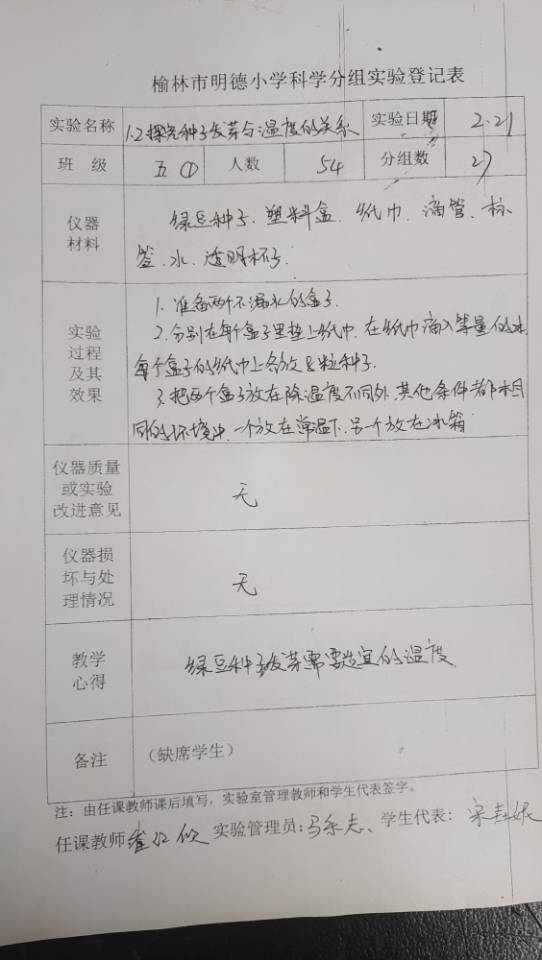 榆林市明德小学科学分组实验登记表
实验名称 1.2探究种子发芽与温度的关系 实验日期 2.21
班 级 五① 人数 54 分组数 27
仪器
材料
绿豆种子、塑料盒、纸巾、滴管、标
签、水、透明杯子.
实验
过程
及其
效果
1. 准备两个不漏水的盒子.
2. 分别在每个盒子里垫上纸巾, 在纸巾滴入等量的水
每个盒子的纸巾上各放 粒种子.
3. 把两个盒子放在除温度不同外, 其他条件都相
同的环境中, 一个放在常温下, 另一个放在冰箱
仪器质量
或实验
改进意见
无
仪器损
坏与处
理情况
无
教学
心得
绿豆种子发芽需要适宜的温度
备注 (缺席学生)
注：由任课教师课后填写，实验室管理教师和学生代表签字。
任课教师 实验管理员: 学生代表: